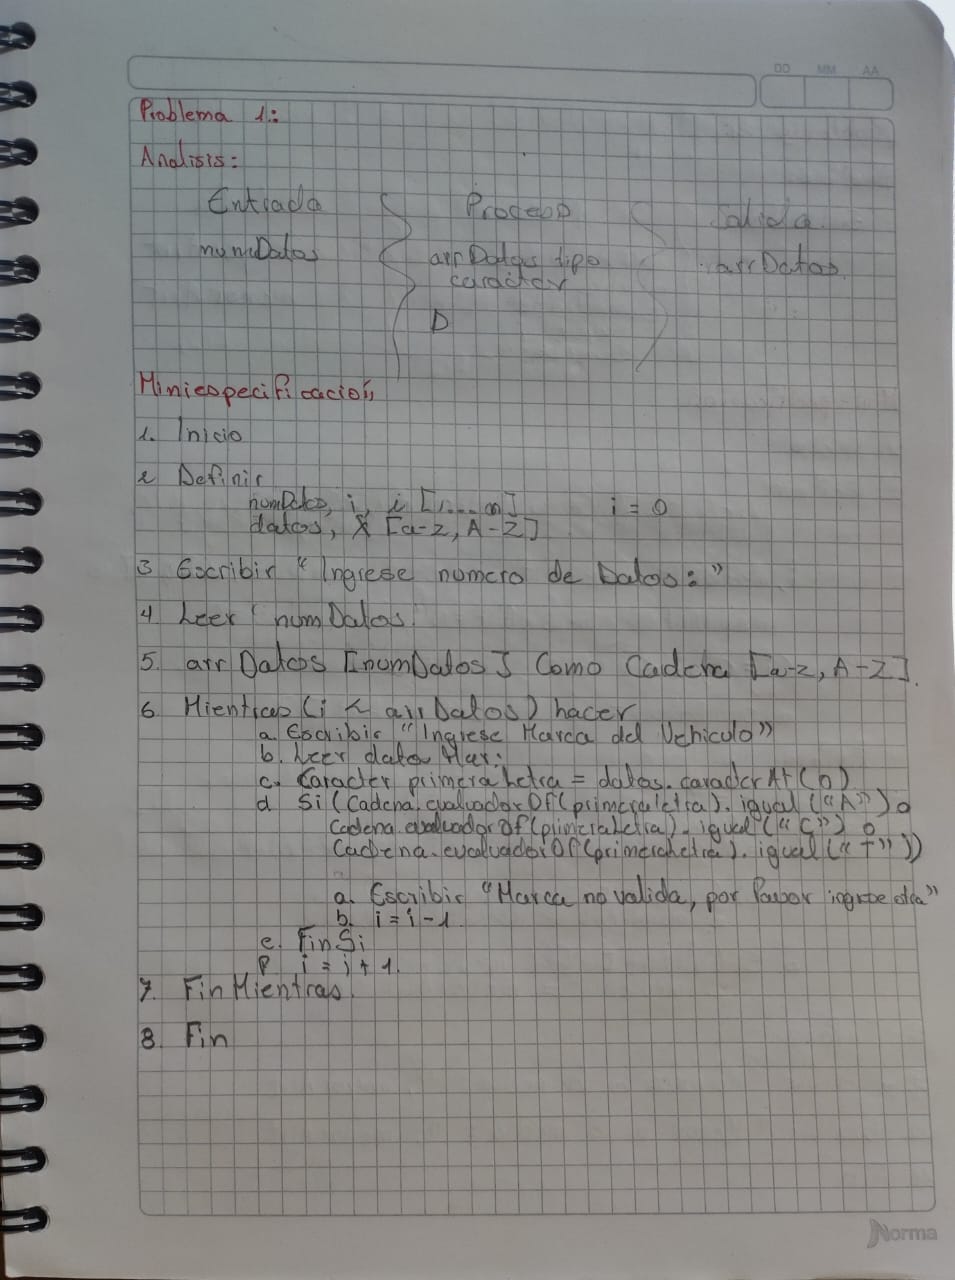 DD MM AA
Problema 1.:
Analisis:
Entrada Proceso Salida
numDatos arrDatos tipo arrDatos.
caracter
D
Miniespecificación
1. Inicio
2 Definir
numDatos, i, i [1....n] i = 0
datos, X [a-z, A-Z]
3 Escribir "Ingrese numero de Datos:"
4 Leer numDatos
5. arrDatos [numDatos] Como Cadena [a-z, A-Z].
6 Mientras (i < arrDatos) hacer
a Escribir "Ingrese Marca del Vehiculo"
b. Leer datos
c. Caracter primeraLetra = datos.caracterAt(0)
d Si (Cadena.evaluadorOf(primeraletra).igual("A") o
Cadena.evaluadorOf(primeraLetra).igual("C") o
Cadena.evaluadorOf(primeraLetra).igual("F"))
a. Escribir "Marca no valida, por favor ingrese otra"
b. i = i - 1.
e. Fin Si
f i = i + 1.
7. Fin Mientras.
8. Fin
Norma